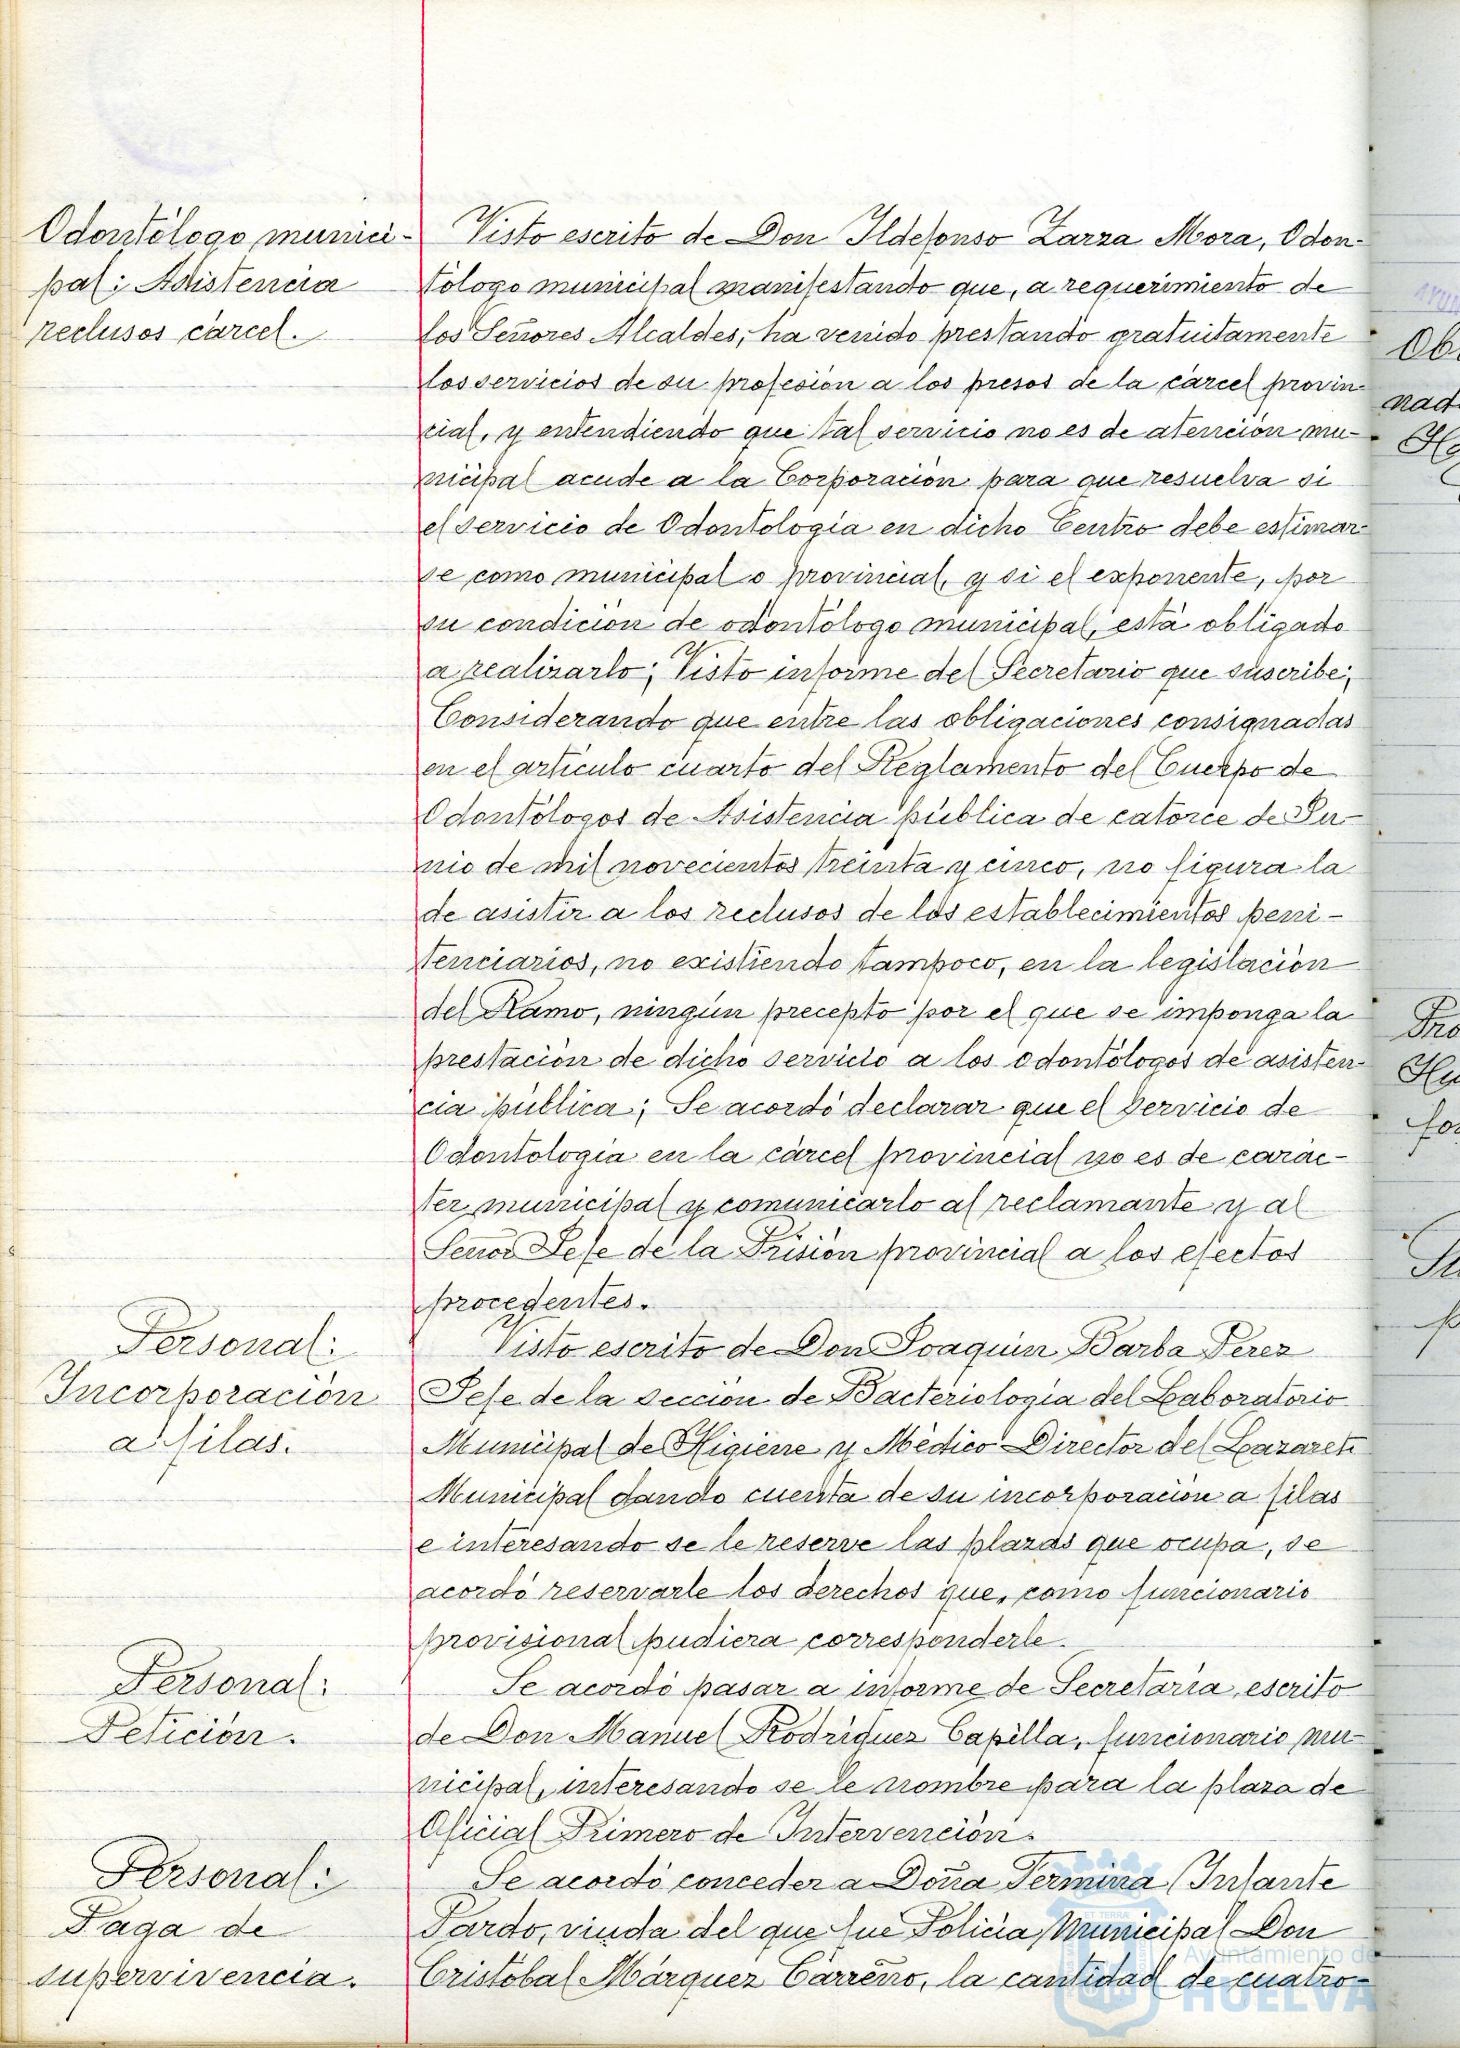 Odontólogo munici-
pal: Asistencia
reclusos cárcel.
Visto escrito de Don Ildefonso Zarza Mora, Odon-
tólogo municipal manifestando que, a requerimiento de
los Señores Alcaldes, ha venido prestando gratuitamente
los servicios de su profesión a los presos de la cárcel provin-
cial, y entendiendo que tal servicio no es de atención mu-
nicipal acude a la Corporación para que resuelva si
el servicio de Odontología en dicho Centro debe estimar-
se como municipal o provincial, y si el exponente, por
su condición de odontólogo municipal, está obligado
a realizarlo; Visto informe del Secretario que suscribe;
Considerando que entre las obligaciones consignadas
en el artículo cuarto del Reglamento del Cuerpo de
Odontólogos de Asistencia pública de catorce de Ju-
nio de mil novecientos treinta y cinco, no figura la
de asistir a los reclusos de los establecimientos peni-
tenciarios, no existiendo tampoco, en la legislación
del Ramo, ningún precepto por el que se imponga la
prestación de dicho servicio a los odontólogos de asisten-
cia pública; Se acordó declarar que el servicio de
Odontología en la cárcel provincial no es de carác-
ter municipal y comunicarlo al reclamante y al
Señor Jefe de la Prisión provincial a los efectos
procedentes.
Personal:
Incorporación
a filas.
Visto escrito de Don Joaquín Barba Pérez
Jefe de la sección de Bacteriología del Laboratorio
Municipal de Higiene y Médico Director del Lazareto
Municipal dando cuenta de su incorporación a filas
e interesando se le reserve las plazas que ocupa, se
acordó reservarle los derechos que, como funcionario
provisional pudiera corresponderle.
Personal:
Petición.
Se acordó pasar a informe de Secretaría, escrito
de Don Manuel Rodríguez Capilla, funcionario mu-
nicipal, interesando se le nombre para la plaza de
Oficial Primero de Intervención.
Personal:
Paga de
supervivencia.
Se acordó conceder a Doña Termina Infante
Pardo, viuda del que fue Policía Municipal Don
Cristóbal Márquez Carreño, la cantidad de cuatro-
Ayuntamiento de
HUELVA